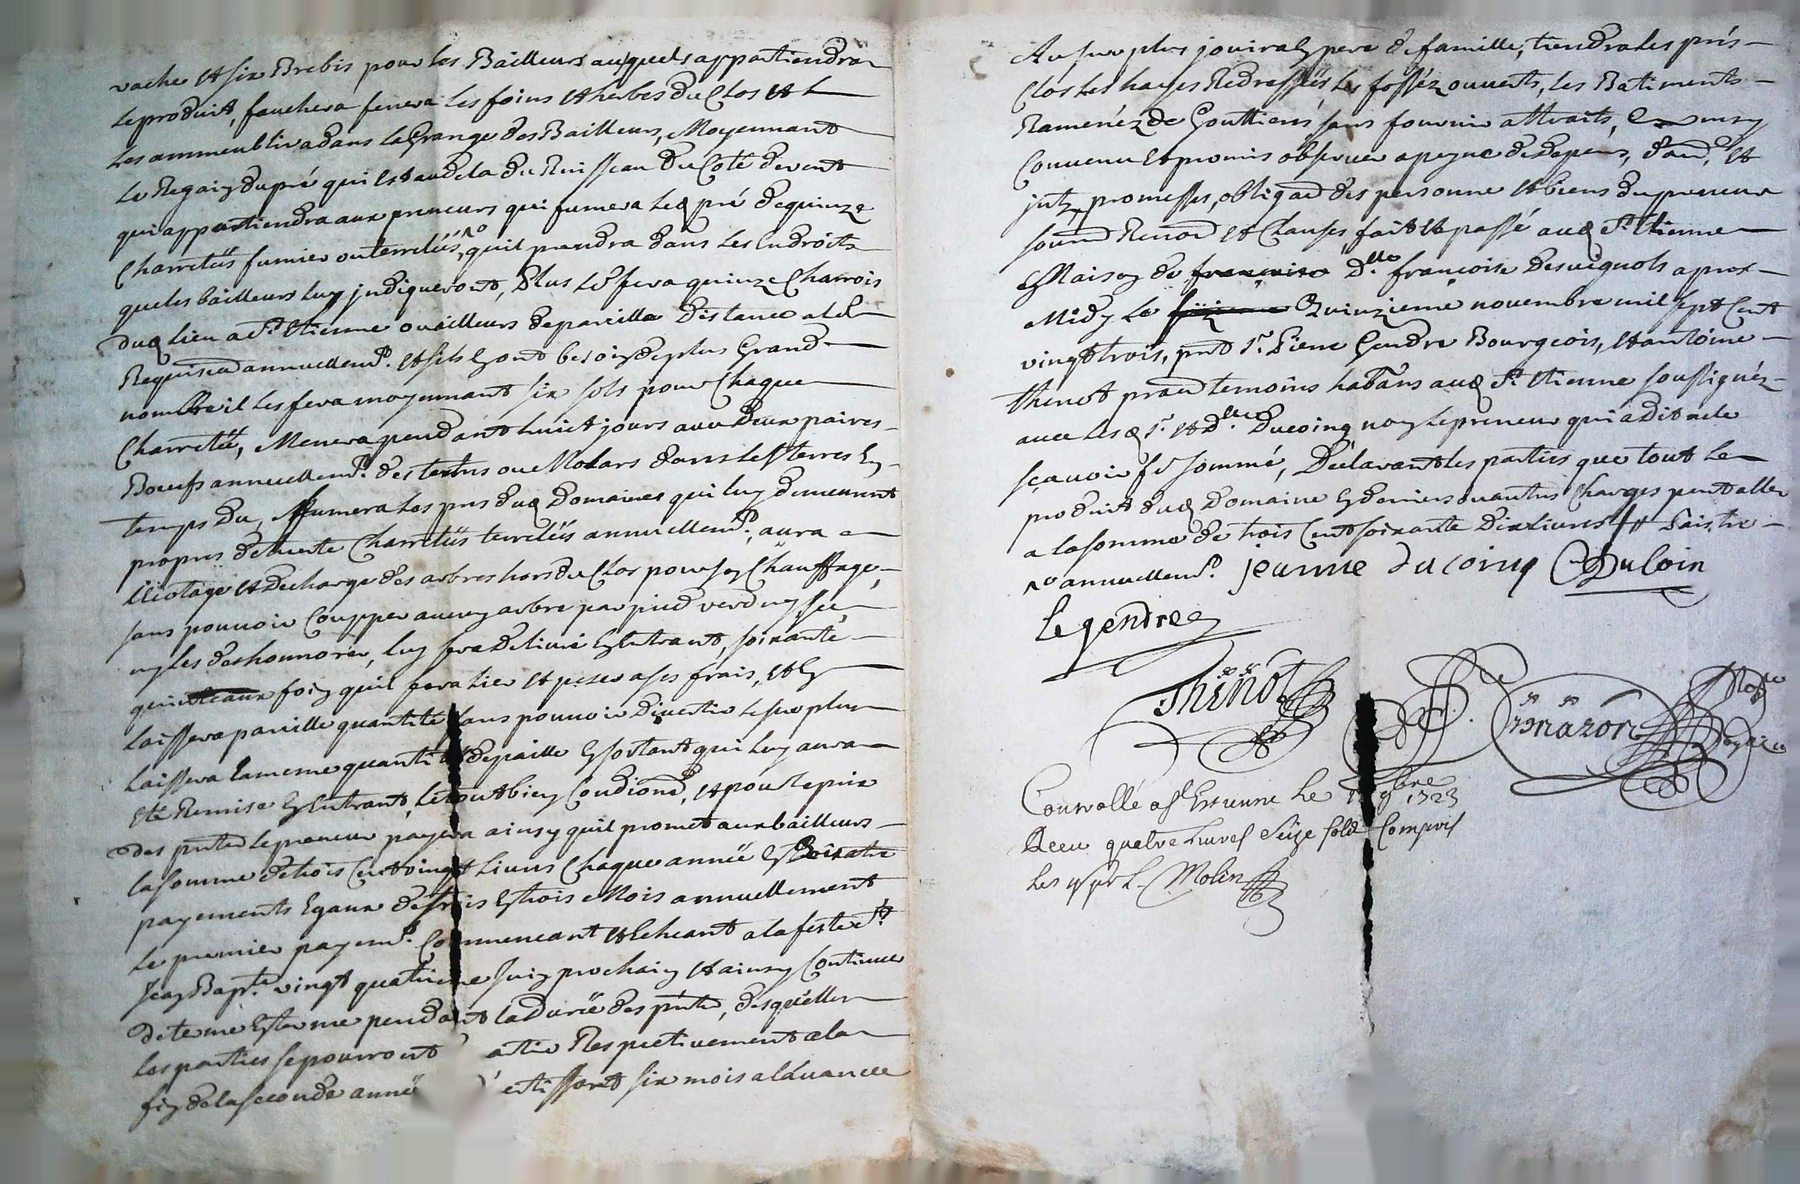 vache et six Brebis pour les Bailleurs auxquels appartiendra
le produit, fauchera fenera les foins et herbes du Clos et L
Les ammeublira dans la Grange des Bailleurs, Moyennant
Le Regain du pré qui est audela du Ruisseau du Coté devent
qui appartiendra aux preneurs qui fumera led pré de quinze
Charretéés fumier ou terréés, qu'il prendra dans les Endroits
que les bailleurs luy jndiqueront, Plus Le fera quinze Charrois
dud lieu a St. Etienne ou ailleurs de pareille Distance a le
Requis on annuellemt. et sils En ont besoin de plus Grand
nombre il les fera moyennant six sols pour Chaque
Charretéé, Menera pendant huict jours aux deux paires
Boeufs annuellemt. des ou Molars dans les terres En
temps Du, fumera les prés dud Domaines qui luy demeurent
propres de trente Charretéés terréés annuellemt., aura
et Decharge des arbres hors du Clos pour son Chauffage,
sans pouvoir Coupper aucun arbre par pied verd ny sec
ny les deshonnorer, luy sera Delivré En Entrant, soixante
quinteaux foin qu'il fera Lier et peser a ses frais, et En
Laissera pareille quantité sans pouvoir Divertir le surplus
Laissera Lameme quantité de paille En sortant qui luy aura
Eté Remise En Entrant, Le tout bien Condioné, et pour le prix
des pntes le preneur payera ainsy qu'il promet aux bailleurs
la somme de trois Cent vingt Livres Chaque année En quatre
payements Egaux de trois En trois Mois annuellement
Le premier payemt. Commencant et Echeant a la feste St.
Jean Bapte. vingt quatrieme Juin prochain et ainsy Continuer
de terme En terme pendant la Duréé des pntes, desquelles
les parties se pourront Respectivement a la
fin de la seconde année six mois al'avance
Au surplus jouira En pere de famille, tiendra les prés
Clos Les hayes Redresséés Les fosséz ouverts, les Batiments
Ramenéz de Gouttierés sans fournir attraits,
Convenu Et promis observer a peyne de depens, dam. et
jnts, promesses, obligaon des personne et biens du preneur
soumon Renon et Clauses, fait et passé aud St. Etienne
Maison de Dlle. francoise Desvignols aprés
Midy Le Quinzieme novembre mil sept Cent
vingt trois, pnt Sr. Pierre Gendre Bourgeois, et antoine
thinot pratn temoins habitans aud St. Etienne soussignéz
avec Les d Sr. et Dlle. Ducoing non le preneur qui a dit ne le
sçavoir fe sommé, Declarant les parties que tout Le
produit dud Domaine En deniers ou autres Charges peut aller
a la somme de trois Cent soixante Dix Livres
annuellemt. jeanne ducoing DuCoin
Legendre
Thinot
Controllé a St Estienne Le 9bre 1723
Receu quatre Livres Seize Sold Compris
Les Molin